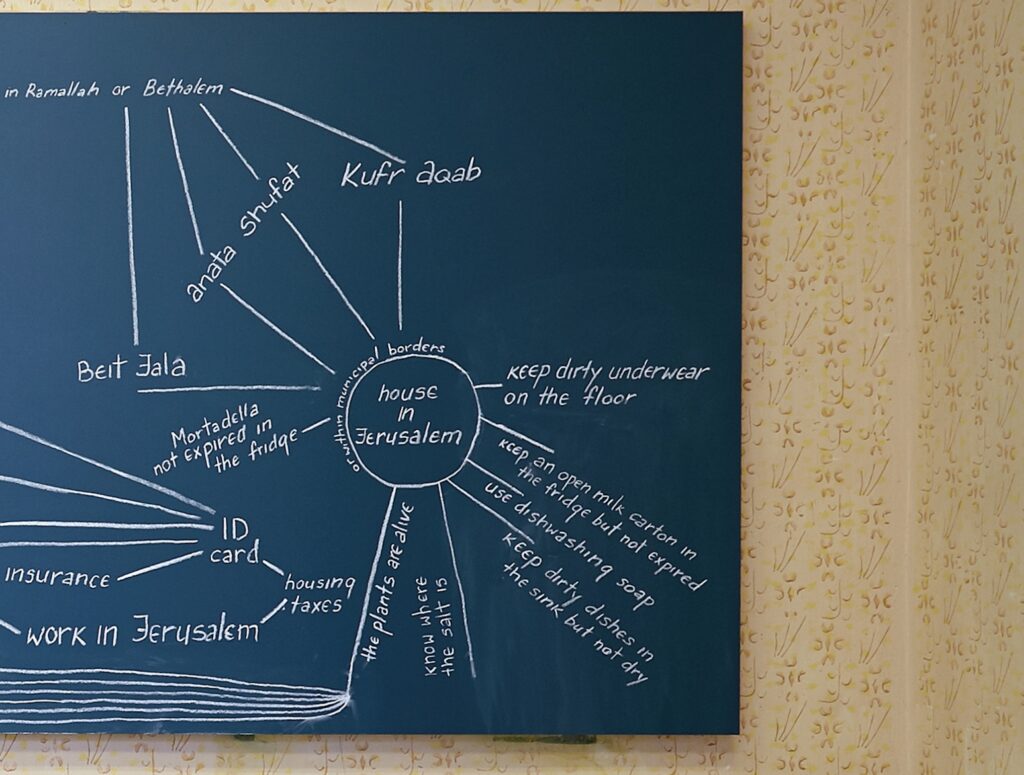 in Ramallah or Bethalem
Kufr aqab
Shufat
anata
Beit Jala
or within municipal borders
house
in
Jerusalem
KEEP dirty underwear
on the floor
Mortadella
not expired in
the fridge
keep an open milk carton in
the fridge but not expired
use dishwashing soap
KEEP dirty dishes in
the sink but not dry
the plants are alive
know where
the salt is
ID
card
insurance
housing
taxes
work in Jerusalem